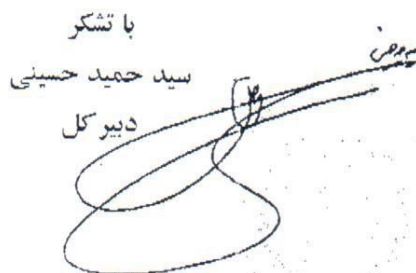 با تشکر
سید حمید حسینی
دبیر کل